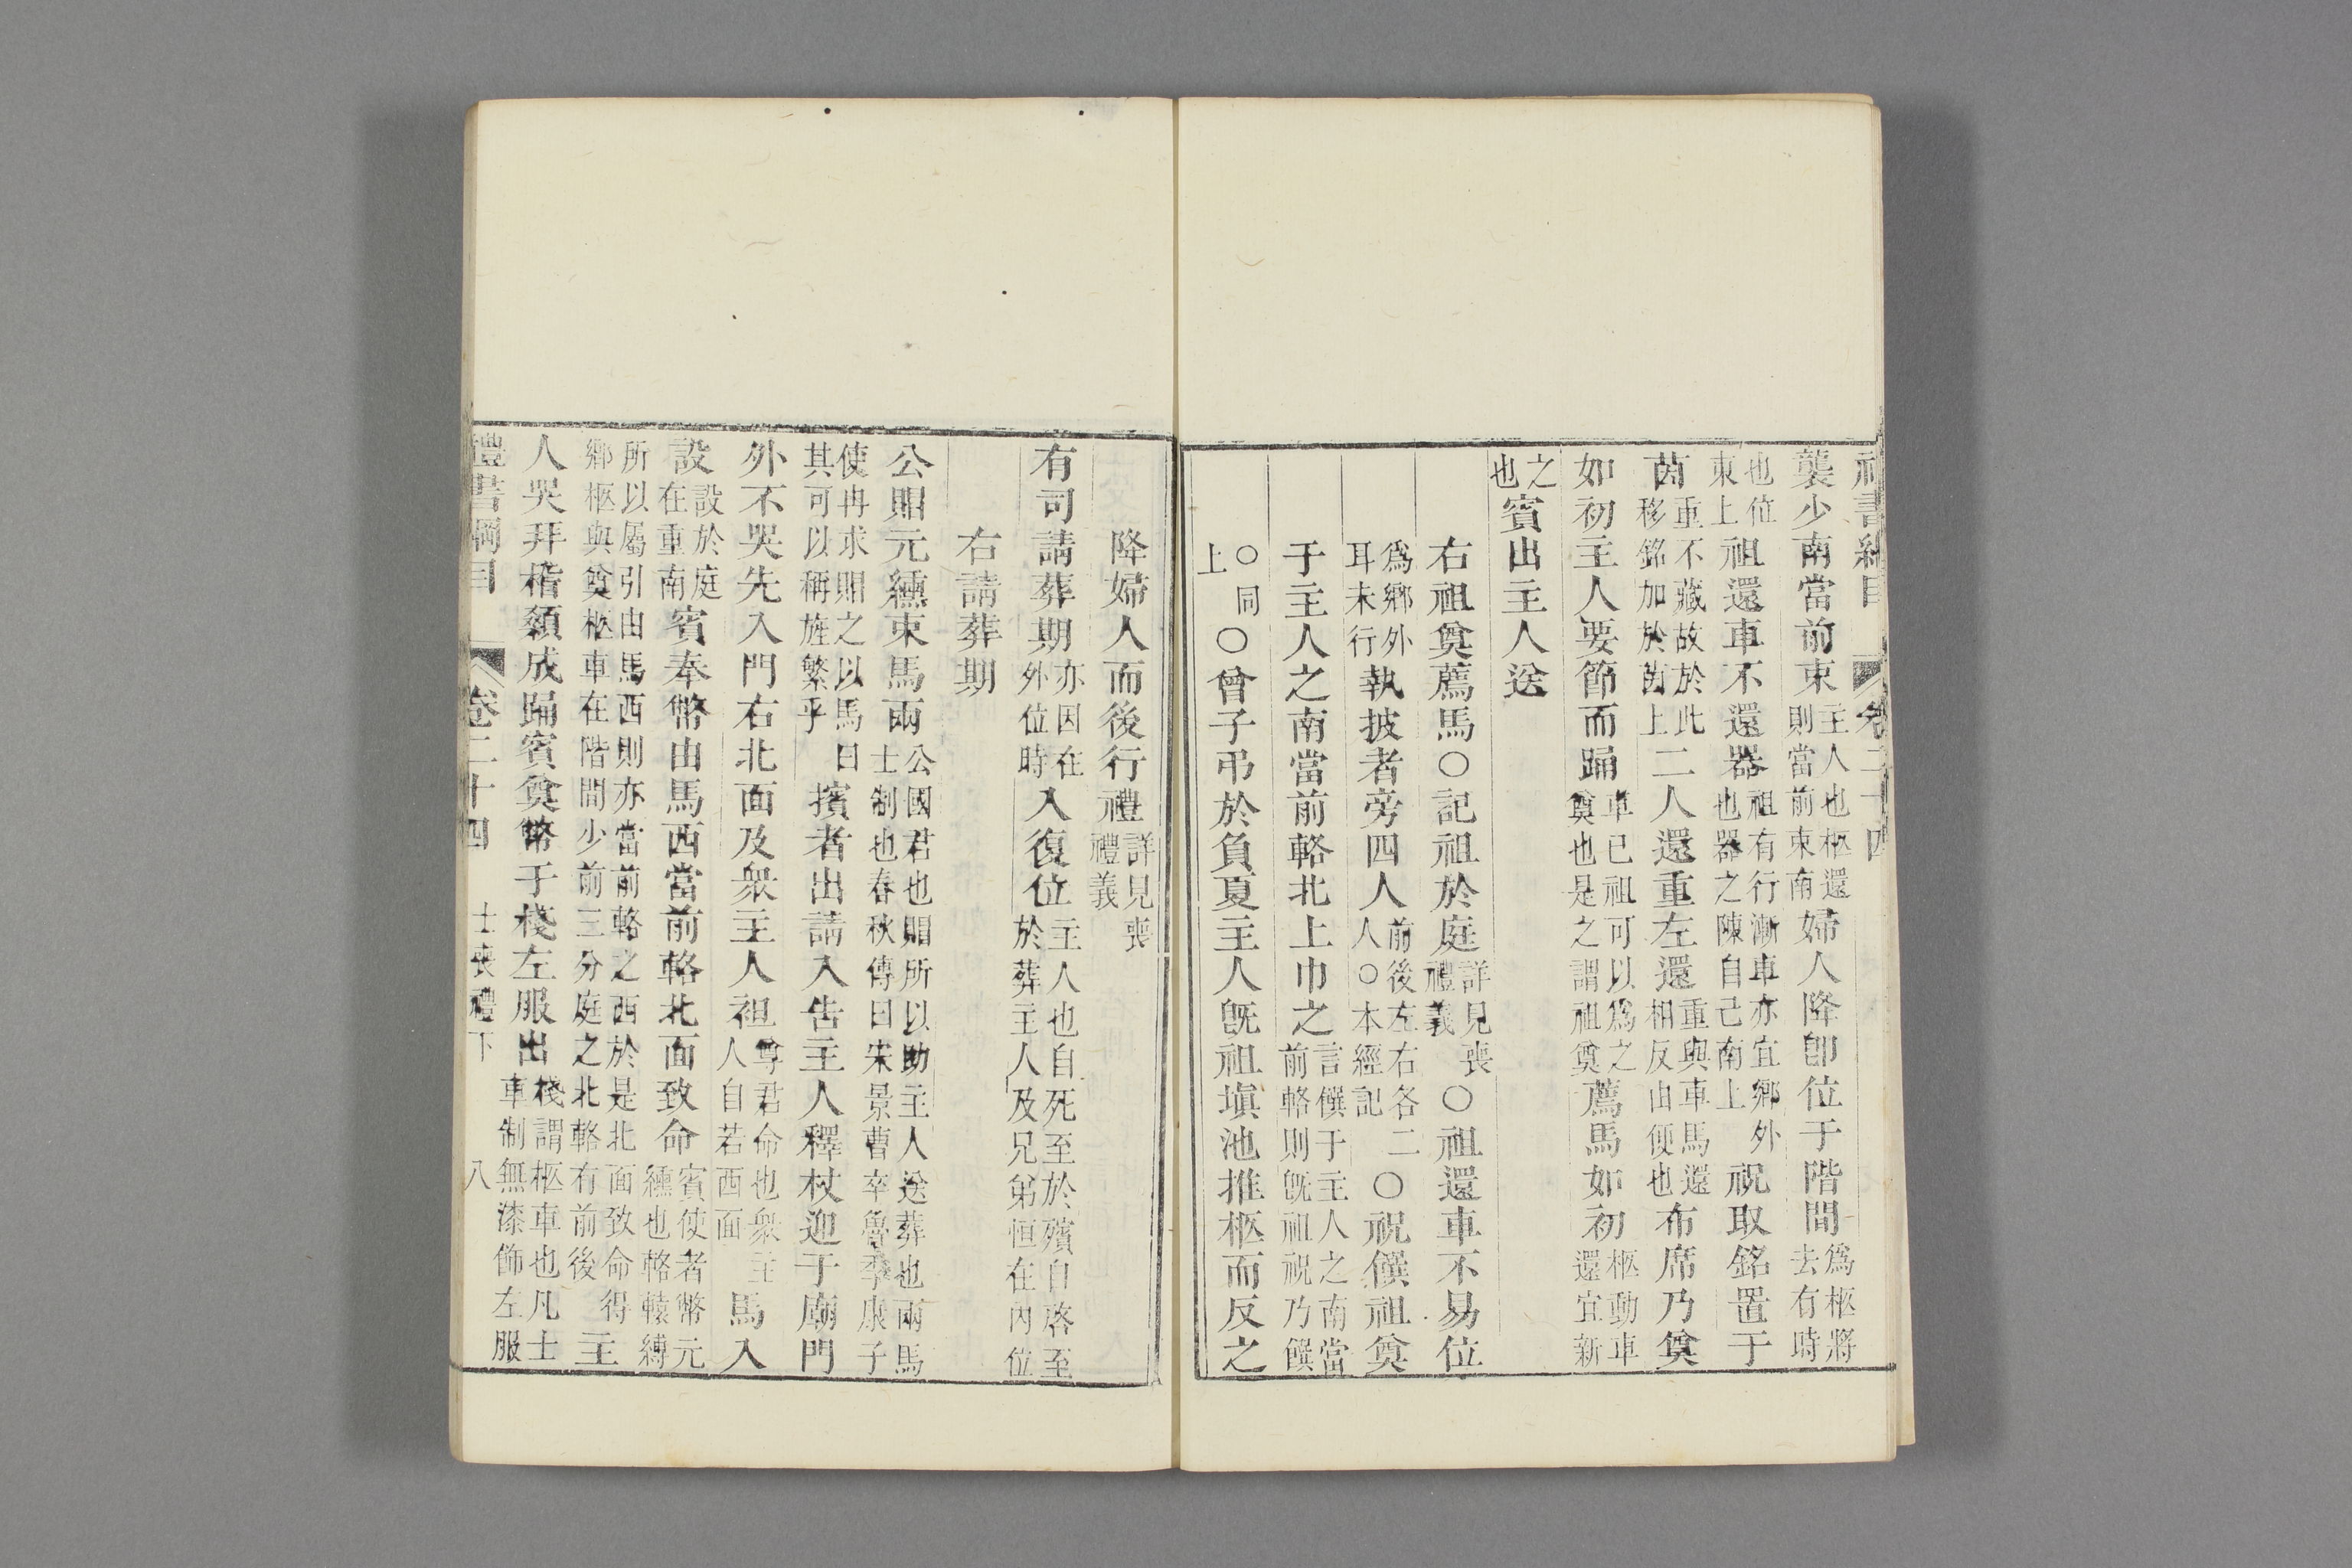 禮書綱目 卷二十四
襲少南當前束主人也柩還則當前束南婦人降卽位于階間爲柩將去有時
也位東上祖還車不還器祖有行漸車亦宜鄉外也器之陳自己南上祝取銘置于
茵重不藏故於此移銘加於茵上二人還重左還重與車馬還相反由便也布席乃奠
如初主人要節而踊車已祖可以爲之奠也是之謂祖奠薦馬如初柩動車還宜新
之也賓出主人送
右祖奠薦馬○記祖於庭詳見喪禮義○祖還車不易位
爲鄉外耳未行執披者旁四人前後左右各二人○本經記○祝饌祖奠
于主人之南當前輅北上巾之言饌于主人之南當前輅則旣祖祝乃饌
○同上○曾子弔於負夏主人旣祖塡池推柩而反之
降婦人而後行禮詳見喪禮義
有司請葬期亦因在外位時入復位主人也自死至於殯自啓至於葬主人及兄弟恒在內位
右請葬期
公賵元纁束馬兩公國君也賵所以助主人送葬也兩馬士制也春秋傳曰宋景曹卒魯季康子
使冉求賵之以馬曰其可以稱旌繁乎擯者出請入告主人釋杖迎于廟門
外不哭先入門右北面及衆主人袒尊君命也衆主人自若西面馬入
設設於庭在重南賓奉幣由馬西當前輅北面致命賓使者幣元纁也輅轅縛
所以屬引由馬西則亦當前輅之西於是北面致命得鄉柩與奠柩車在階間少前三分庭之北輅有前後主
人哭拜稽顙成踊賓奠幣于棧左服出棧謂柩車也凡士車制無漆飾左服
禮書綱目 卷二十四 士喪禮下 八